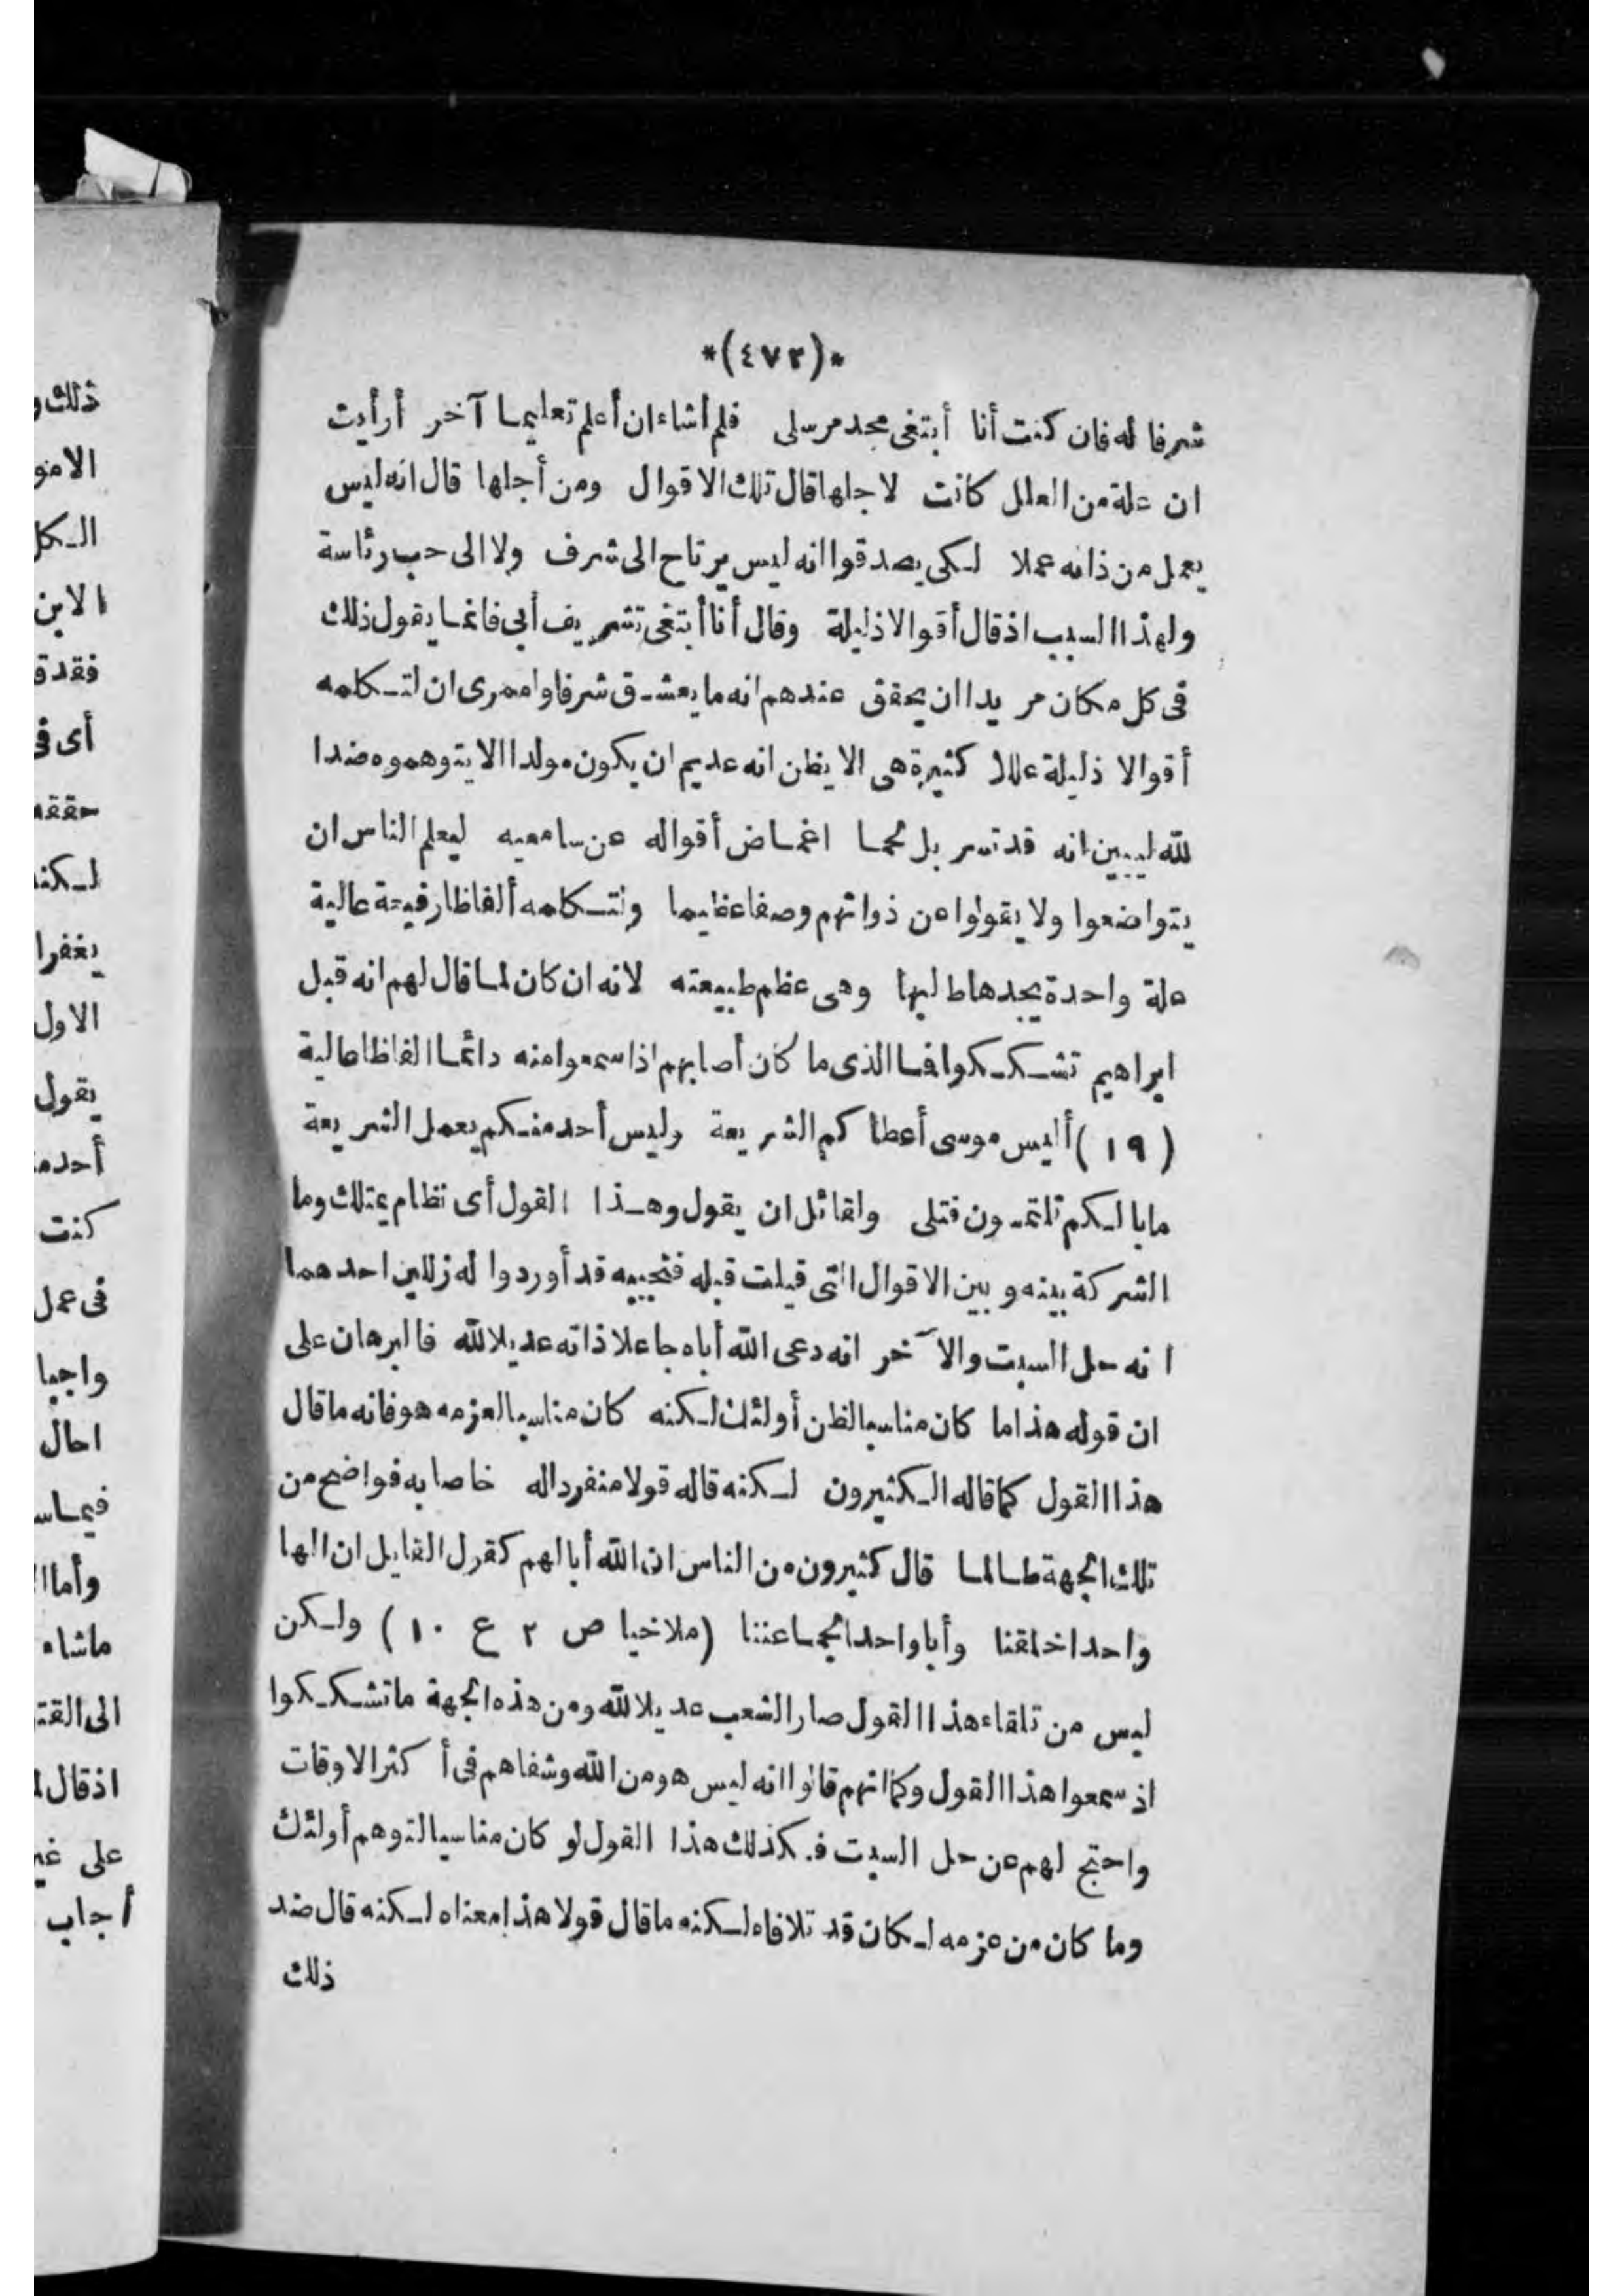 *(٤٧٣)*
شرفا له فان كنت أنا أبتغى مجد مرسلى فلم أشاء ان أعلم تعليما آخر أرأيت
ان علة من العلل كانت لاجلها قال تلك الاقوال ومن أجلها قال انه ليس
يعمل من ذاته عملا لكى يصدقوا انه ليس يرتاح الى شرف ولا الى حب رئاسة
ولهذا السبب اذ قال أقوالا ذليلة وقال أنا أبتغى تشريف أبى فانما يقول ذلك
فى كل مكان مريدا ان يحقق عندهم انه ما يعشق شرفا ولعمرى ان لتكلمه
أقوالا ذليلة عللا كثيرة هى الا يظن انه عديم ان يكون مولدا الا يتوهموه ضدا
لله ليبين انه قد تسربل لحما اغماض أقواله عن سامعيه ليعلم الناس ان
يتواضعوا ولا يقولوا عن ذواتهم وصفا عظيما ولتكلمه ألفاظا رفيعة عالية
علة واحدة يجدها طالبها وهى عظم طبيعته لانه ان كان لما قال لهم انه قبل
ابراهيم تشككوا فما الذى ما كان أصابهم اذا سمعوا منه دائما الفاظا عالية
(١٩) أليس موسى أعطاكم الشريعة وليس أحد منكم يعمل الشريعة
ما بالكم تلتمسون قتلى ولقائل ان يقول وهذا القول أى نظام يمتلك وما
الشركة بينه وبين الاقوال التى قيلت قبله فنجيبه قد أوردوا له زللين احدهما
انه حل السبت والآخر انه دعى الله أباه جاعلا ذاته عديلا لله فالبرهان على
ان قوله هذا ما كان مناسبا لظن أولئك لكنه كان مناسبا لعزمه هو فانه ما قال
هذا القول كما قاله الكثيرون لكنه قاله قولا منفردا له خاصا به فواضح من
تلك الجهة طالما قال كثيرون من الناس ان الله أبا لهم كقول القايل ان الها
واحدا خلقنا وأبا واحدا لجماعتنا (ملاخيا ص ٢ ع ١٠) ولكن
ليس من تلقاء هذا القول صار الشعب عديلا لله ومن هذه الجهة ما تشككوا
اذ سمعوا هذا القول وكما انهم قالوا انه ليس هو من الله وشفاهم فى أكثر الاوقات
واحتج لهم عن حل السبت فكذلك هذا القول لو كان مناسبا لتوهم أولئك
وما كان من عزمه لكان قد تلافاه لكنه ما قال قولا هذا معناه لكنه قال ضد
ذلك
ذلك و
الامو
الكل
الابن
فقد ق
أى ف
حققه
لكنه
يغفرا
الاول
يقول
أحد م
كنت
فى عمل
واجبا
احال
فيما س
وأما ا
ما شاء
الى القت
اذ قال ل
على غير
أجاب